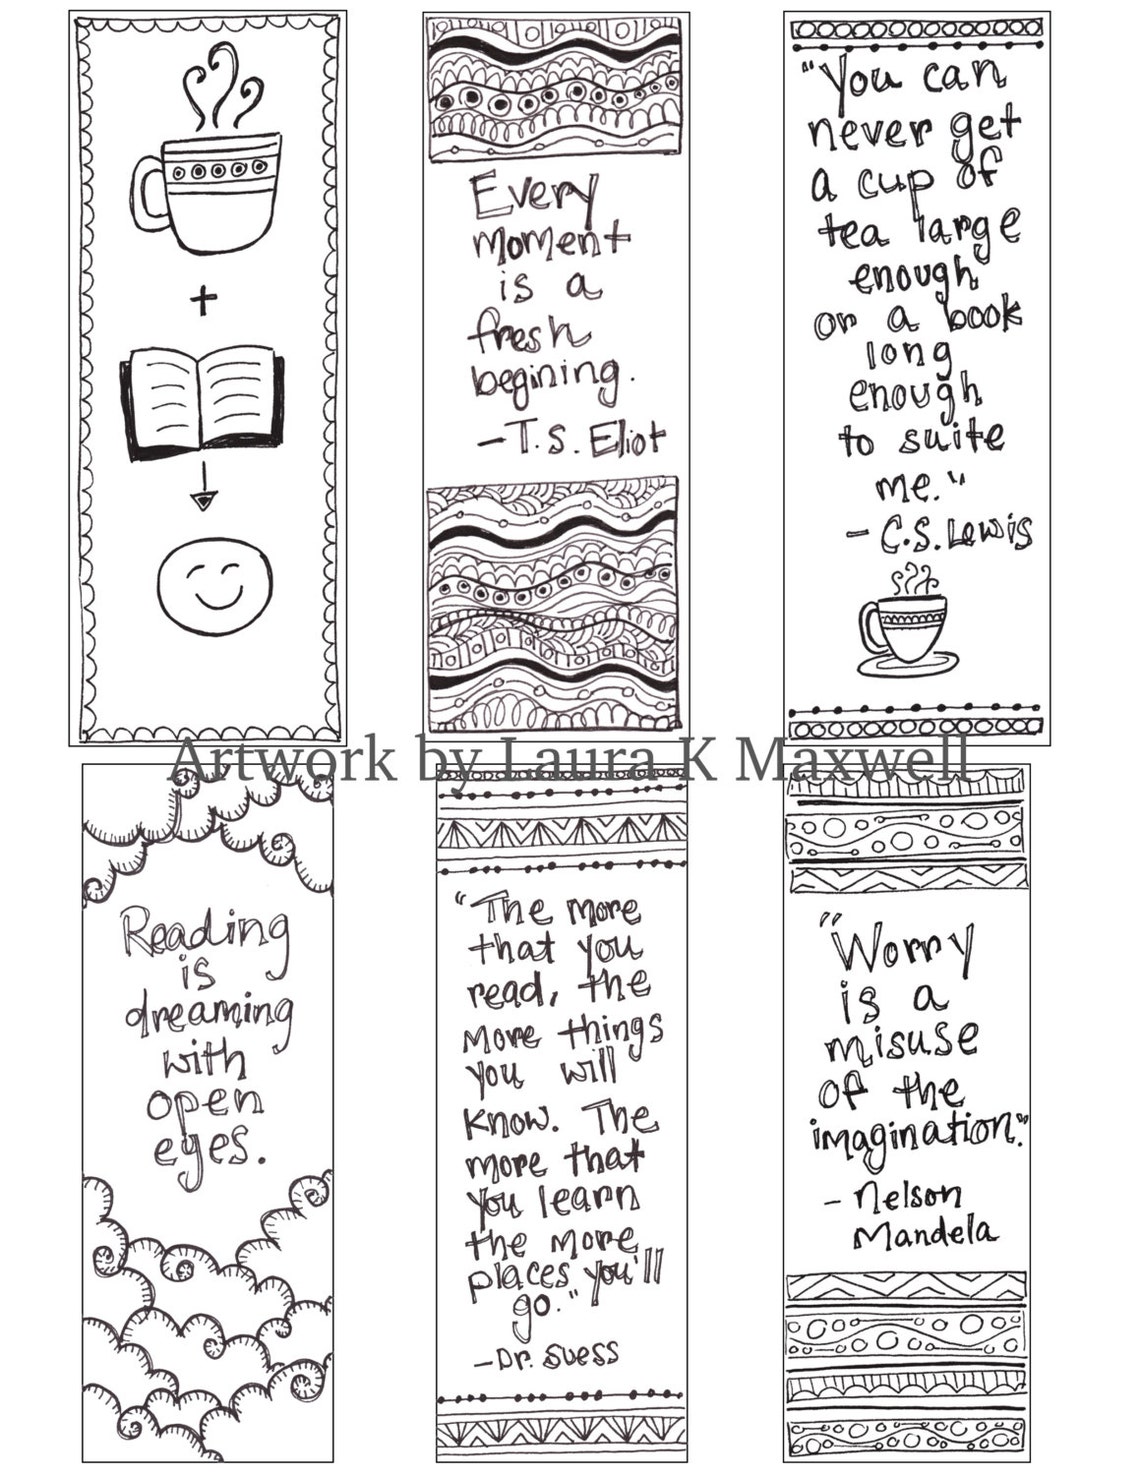 +
Every
moment
is a
fresh
begining.
-T.S. Eliot
"You can
never get
a cup of
tea large
enough
or a book
long
enough
to suite
me."
- C.S. Lewis
Artwork by Laura K Maxwell
Reading
is
dreaming
with
open
eyes.
"The more
that you
read, the
more things
you will
know. The
more that
you learn
the more
places you'll
go."
-Dr. Suess
"Worry
is a
misuse
of the
imagination."
- Nelson
Mandela